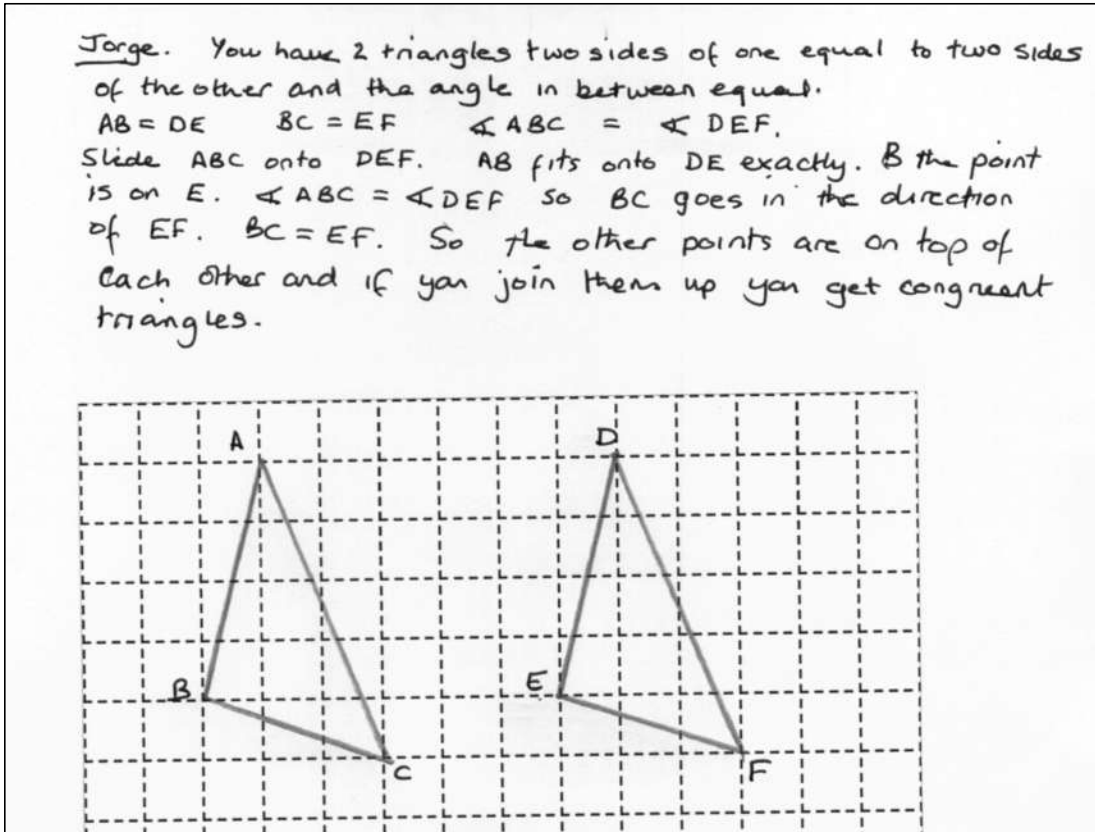 Jorge. You have 2 triangles two sides of one equal to two sides
of the other and the angle in between equal.
AB = DE BC = EF ∢ ABC = ∢ DEF.
Slide ABC onto DEF. AB fits onto DE exactly. B the point
is on E. ∢ ABC = ∢ DEF so BC goes in the direction
of EF. BC = EF. So the other points are on top of
each other and if you join them up you get congruent
triangles.
A D
B E
C F